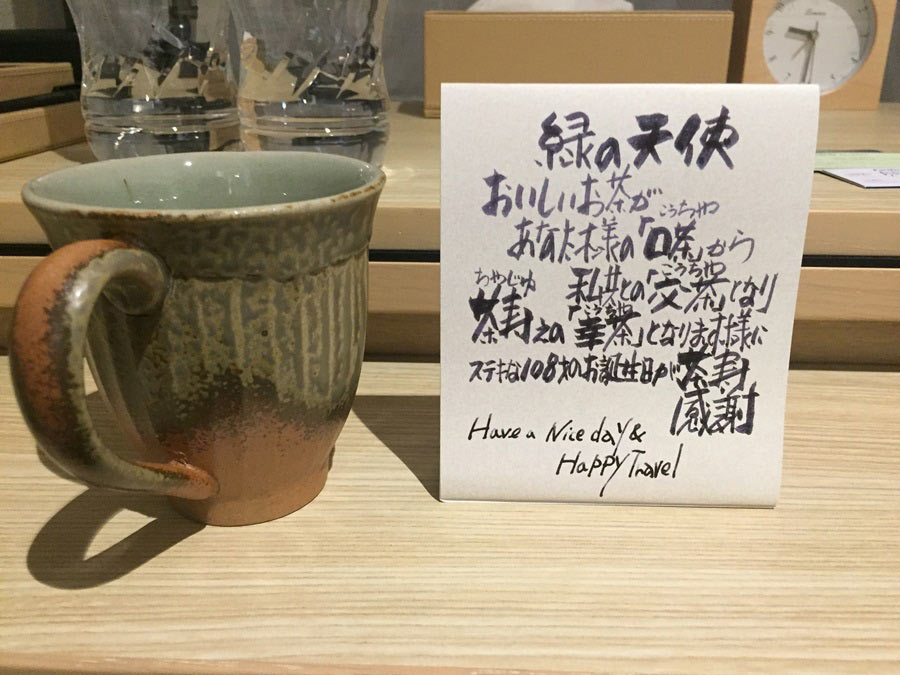 緑の天使
おいしいお茶が
こうちゃ
あなた様の「口茶」から
こうちゃ
私共との「交茶」となり
ちゃじゅ こうちゃ
茶寿えの「幸茶」となります様に
ステキな108才のお誕生日が茶寿
感謝
Have a Nice day &
Happy Travel